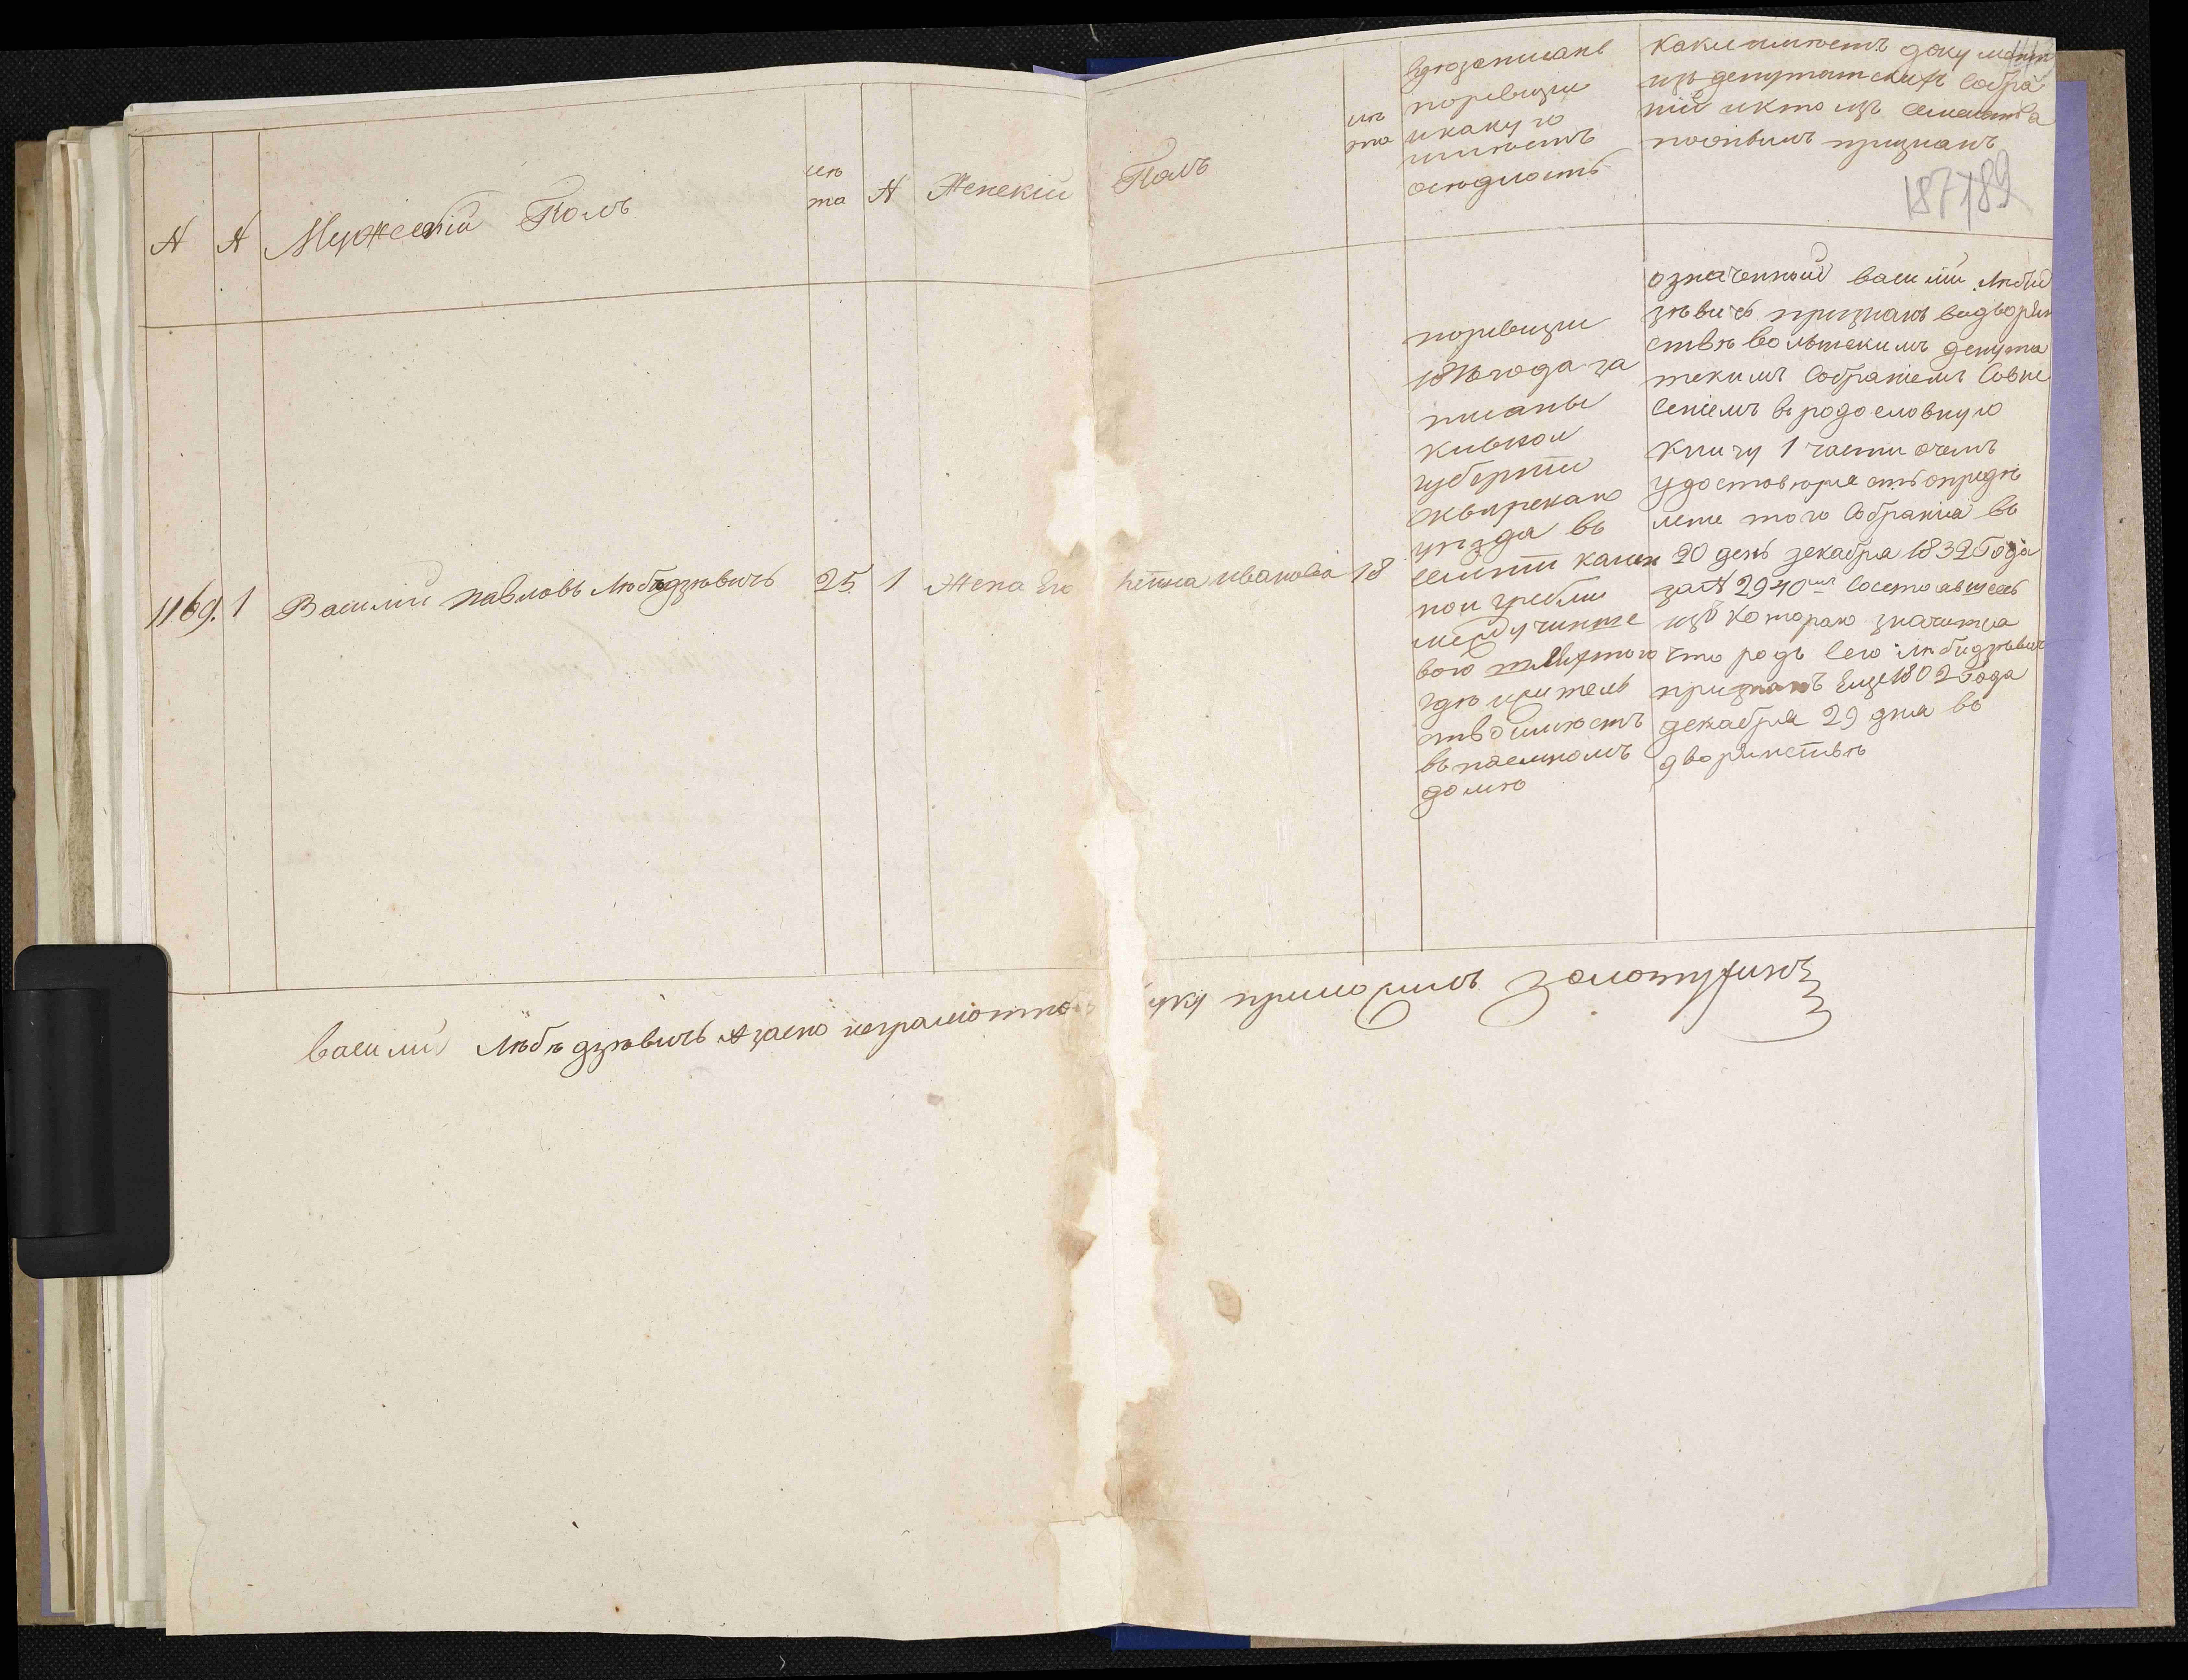 N N Мужескій Полъ лѣ та N Женскій Полъ лѣ та
гдѣ записаны
поревизіи
икакую
имѣетъ
осѣдлость
какіе имѣетъ доку менты
изъ депутатскихъ собра
ній икто изъ семейства
поонымъ признанъ
187 189
1169. 1 Василій Павловъ Любѣдзѣвичъ 25 1 Жена Его Анна иванова 18
поревизіи
1816 года за
писаны
Киевской
губерніи
сквирскаго
уѣзда въ
селеніи камен
ной гребли
между чинше
вою шляхтою
гдѣ житель
ство имѣетъ
въ наемномъ
домѣ
означенный василій любѣд
зѣвичъ признанъ водворян
ствѣ волынскимъ депута
тскимъ собраніемъ совне
сеніемъ въ родословную
Книгу 1 части очемъ
удостовѣряетъ опредѣ
леніе того собранія въ
20 день декабря 1832 Года
за N 2940мъ состоявшееся
изъ котораго значится
что родъ сего любидзѣвича
признанъ Еще 1802 Года
декабря 29 дня въ
дворянствѣ
василій Любѣдзѣвичъ А занего неграмотнаго руку приложилъ Золотухинъ